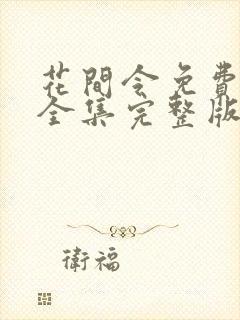 花間令免費
全集完整版
衛福